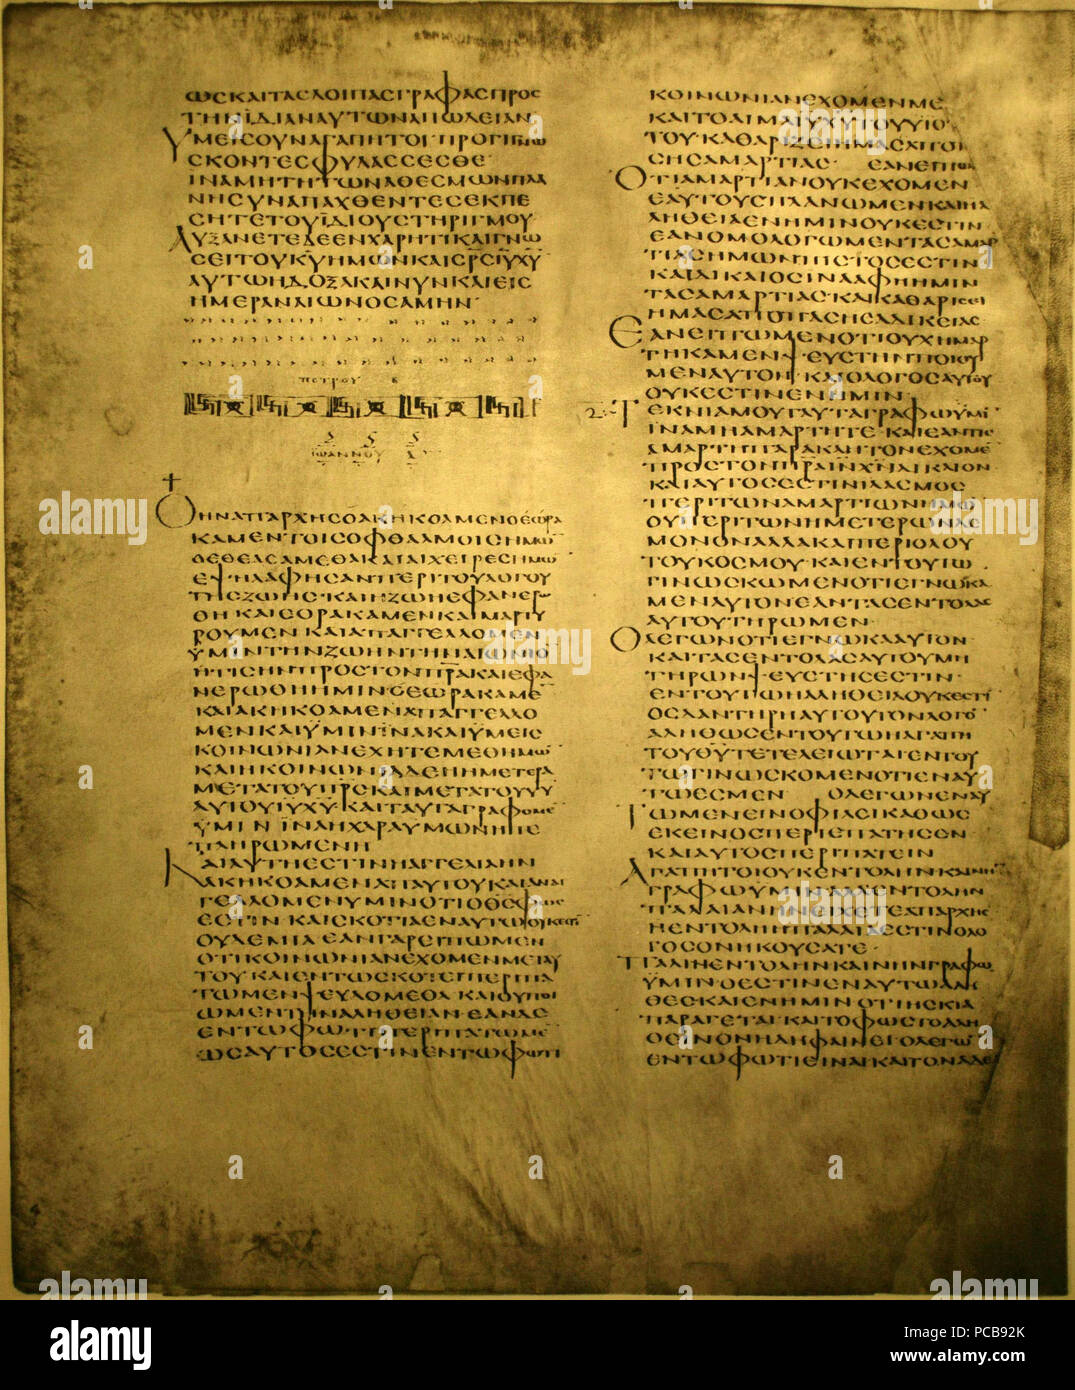 ΩϹΚΑΙΤΑϹΛΟΙΠΑϹΓΡΑΦΑϹΠΡΟϹ
ΤΗΝΪΔΙΑΝΑΥΤΩΝΑΠΩΛΕΙΑΝ
ΥΜΕΙϹΟΥΝΑΓΑΠΗΤΟΙΠΡΟΓΙΝΩ
ϹΚΟΝΤΕϹΦΥΛΑϹϹΕϹΘΕ
ΙΝΑΜΗΤΗΤΩΝΑΘΕϹΜΩΝΠΛΑ
ΝΗϹΥΝΑΠΑΧΘΕΝΤΕϹΕΚΠΕ
ϹΗΤΕΤΟΥΪΔΙΟΥϹΤΗΡΙΓΜΟΥ
ΑΥΞΑΝΕΤΕΔΕΕΝΧΑΡΗΤΙΚΑΙΓΝΩ
ϹΕΙΤΟΥΚΥΗΜΩΝΚΑΙϹΡϹΙΥΧΥ
ΑΥΤΩΗΔΟΞΑΚΑΙΝΥΝΚΑΙΕΙϹ
ΗΜΕΡΑΝΑΙΩΝΟϹΑΜΗΝ
ΠΕΤΡΟΥ Β
ΙΩΑΝΝΟΥ Α
ΟΗΝΑΠΑΡΧΗϹΟΑΚΗΚΟΑΜΕΝΟΕΩΡΑ
ΚΑΜΕΝΤΟΙϹΟΦΘΑΛΜΟΙϹΗΜΩ
ΟΕΘΕΑϹΑΜΕΘΑΚΑΙΑΙΧΕΙΡΕϹΗΜΩ
ΕΨΗΛΑΦΗϹΑΝΠΕΡΙΤΟΥΛΟΓΟΥ
ΤΗϹΖΩΗϹΚΑΙΗΖΩΗΕΦΑΝΕΡΩ
ΘΗΚΑΙΕΟΡΑΚΑΜΕΝΚΑΙΜΑΡΤΥ
ΡΟΥΜΕΝΚΑΙΑΠΑΓΓΕΛΛΟΜΕΝ
ΥΜΙΝΤΗΝΖΩΗΝΤΗΝΑΙΩΝΙΟ
ΗΤΙϹΗΝΠΡΟϹΤΟΝΠΡΑΚΑΙΕΦΑ
ΝΕΡΩΘΗΗΜΙΝΟΕΩΡΑΚΑΜΕ
ΚΑΙΑΚΗΚΟΑΜΕΝΑΠΑΓΓΕΛΛΟ
ΜΕΝΚΑΙΫΜΙΝΪΝΑΚΑΙΫΜΕΙϹ
ΚΟΙΝΩΝΙΑΝΕΧΗΤΕΜΕΘΗΜΩ
ΚΑΙΗΚΟΙΝΩΝΙΑΔΕΗΗΜΕΤΕΡΑ
ΜΕΤΑΤΟΥΠΡϹΚΑΙΜΕΤΑΤΟΥΥΥ
ΑΥΤΟΥΙΥΧΥΚΑΙΤΑΥΤΑΓΡΑΦΟΜΕ
ΫΜΙΝΪΝΑΗΧΑΡΑΥΜΩΝΗΠΕ
ΠΛΗΡΩΜΕΝΗ
ΚΑΙΑΥΤΗΕϹΤΙΝΗΑΓΓΕΛΙΑΗΝ
ΑΚΗΚΟΑΜΕΝΑΠΑΥΤΟΥΚΑΙΑΝΑΓ
ΓΕΛΛΟΜΕΝΥΜΙΝΟΤΙΟΘϹΦΩϹ
ΕϹΤΙΝΚΑΙϹΚΟΤΙΑΕΝΑΥΤΩΟΥΚΕϹΤΙ
ΟΥΔΕΜΙΑΕΑΝΓΑΡΕΙΠΩΜΕΝ
ΟΤΙΚΟΙΝΩΝΙΑΝΕΧΟΜΕΝΜΕΤΑΥ
ΤΟΥΚΑΙΕΝΤΩϹΚΟΤΕΙΠΕΡΙΠΑ
ΤΩΜΕΝΨΕΥΔΟΜΕΘΑΚΑΙΟΥΠΟΙ
ΟΥΜΕΝΤΗΝΑΛΗΘΕΙΑΝΕΑΝΔΕ
ΕΝΤΩΦΩΤΙΠΕΡΙΠΑΤΩΜΕ
ΩϹΑΥΤΟϹΕϹΤΙΝΕΝΤΩΦΩΤΙ
ΚΟΙΝΩΝΙΑΝΕΧΟΜΕΝΜΕ
ΚΑΙΤΟΑΙΜΑΙΥΧΥΤΟΥΥΙΟΥ
ΤΟΥΚΑΘΑΡΙΖΕΙΗΜΑϹΑΠΟΠ
ϹΗϹΑΜΑΡΤΙΑϹ ΕΑΝΕΙΠΩΜ
ΟΤΙΑΜΑΡΤΙΑΝΟΥΚΕΧΟΜΕΝ
ΕΑΥΤΟΥϹΠΛΑΝΩΜΕΝΚΑΙΗΑ
ΛΗΘΕΙΑΕΝΗΜΙΝΟΥΚΕϹΤΙΝ
ΕΑΝΟΜΟΛΟΓΩΜΕΝΤΑϹΑΜΑΡ
ΤΙΑϹΗΜΩΝΠΙϹΤΟϹΕϹΤΙΝ
ΚΑΙΔΙΚΑΙΟϹΙΝΑΑΦΗΗΜΙΝ
ΤΑϹΑΜΑΡΤΙΑϹΚΑΙΚΑΘΑΡΙϹΕΙ
ΗΜΑϹΑΠΟΠΑϹΗϹΑΔΙΚΕΙΑϹ
ΕΑΝΕΙΠΩΜΕΝΟΤΙΟΥΧΗΜΑΡ
ΤΗΚΑΜΕΝΨΕΥϹΤΗΝΠΟΙΟΥ
ΜΕΝΑΥΤΟΝΚΑΙΟΛΟΓΟϹΑΥΤΟΥ
ΟΥΚΕϹΤΙΝΕΝΗΜΙΝ
ΤΕΚΝΙΑΜΟΥΤΑΥΤΑΓΡΑΦΩΥΜΙ
ΪΝΑΜΗΑΜΑΡΤΗΤΕΚΑΙΕΑΝΤΙϹ
ΑΜΑΡΤΗΠΑΡΑΚΛΗΤΟΝΕΧΟΜΕ
ΠΡΟϹΤΟΝΠΡΑΙΝΧΝΔΙΚΑΙΟΝ
ΚΑΙΑΥΤΟϹΕϹΤΙΝΙΛΑϹΜΟϹ
ΠΕΡΙΤΩΝΑΜΑΡΤΙΩΝΗΜΩ
ΟΥΠΕΡΙΤΩΝΗΜΕΤΕΡΩΝΔΕ
ΜΟΝΟΝΑΛΛΑΚΑΙΠΕΡΙΟΛΟΥ
ΤΟΥΚΟϹΜΟΥΚΑΙΕΝΤΟΥΤΩ
ΓΙΝΩϹΚΩΜΕΝΟΤΙΕΓΝΩΚΑ
ΜΕΝΑΥΤΟΝΕΑΝΤΑϹΕΝΤΟΛΑϹ
ΑΥΤΟΥΤΗΡΩΜΕΝ
ΟΛΕΓΩΝΟΤΙΕΓΝΩΚΑΑΥΤΟΝ
ΚΑΙΤΑϹΕΝΤΟΛΑϹΑΥΤΟΥΜΗ
ΤΗΡΩΝΨΕΥϹΤΗϹΕϹΤΙΝ
ΕΝΤΟΥΤΩΗΑΛΗΘΕΙΑΟΥΚΕϹΤΙ
ΟϹΔΑΝΤΗΡΗΑΥΤΟΥΤΟΝΛΟΓΟ
ΑΛΗΘΩϹΕΝΤΟΥΤΩΗΑΓΑΠΗ
ΤΟΥΘΥΤΕΤΕΛΕΙΩΤΑΙΕΝΤΟΥ
ΤΩΓΙΝΩϹΚΟΜΕΝΟΤΙΕΝΑΥ
ΤΩΕϹΜΕΝ ΟΛΕΓΩΝΕΝΑΥ
ΤΩΜΕΝΕΙΝΟΦΙΛΕΙΚΑΘΩϹ
ΕΚΕΙΝΟϹΠΕΡΙΕΠΑΤΗϹΕΝ
ΚΑΙΑΥΤΟϹΠΕΡΙΠΑΤΕΙΝ
ΑΓΑΠΗΤΟΙΟΥΚΕΝΤΟΛΗΝΚΑΙΝΗΝ
ΓΡΑΦΩΫΜΙΝΑΛΛΕΝΤΟΛΗΝ
ΠΑΛΑΙΑΝΗΝΕΙΧΕΤΕΑΠΑΡΧΗϹ
ΗΕΝΤΟΛΗΗΠΑΛΑΙΑΕϹΤΙΝΟΛΟ
ΓΟϹΟΝΗΚΟΥϹΑΤΕ
ΠΑΛΙΝΕΝΤΟΛΗΝΚΑΙΝΗΝΓΡΑΦΩ
ΫΜΙΝΟΕϹΤΙΝΕΝΑΥΤΩΑΛΗ
ΘΕϹΚΑΙΕΝΗΜΙΝΟΤΙΗϹΚΙΑ
ΠΑΡΑΓΕΤΑΙΚΑΙΤΟΦΩϹΤΟΑΛΗ
ΘΕΙΝΟΝΗΔΗΦΑΙΝΕΙΟΛΕΓΩ
ΕΝΤΩΦΩΤΙΕΙΝΑΙΚΑΙΤΟΝΑΔΕΛ
alamy
Image ID: PCB92K
www.alamy.com